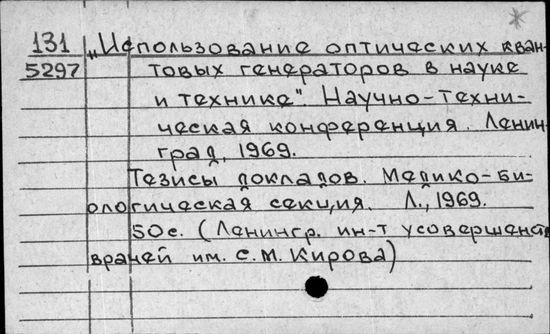 131 „Использование оптических кван-
5297 товых генераторов в науке
и технике". Научно-техни-
ческая конференция. Ленин-
град, 1969.
Тезисы докладов. Медико-би-
ологическая секция. Л., 1969.
50с. (Ленингр. ин-т усовершенств
врачей им. С.М. Кирова)